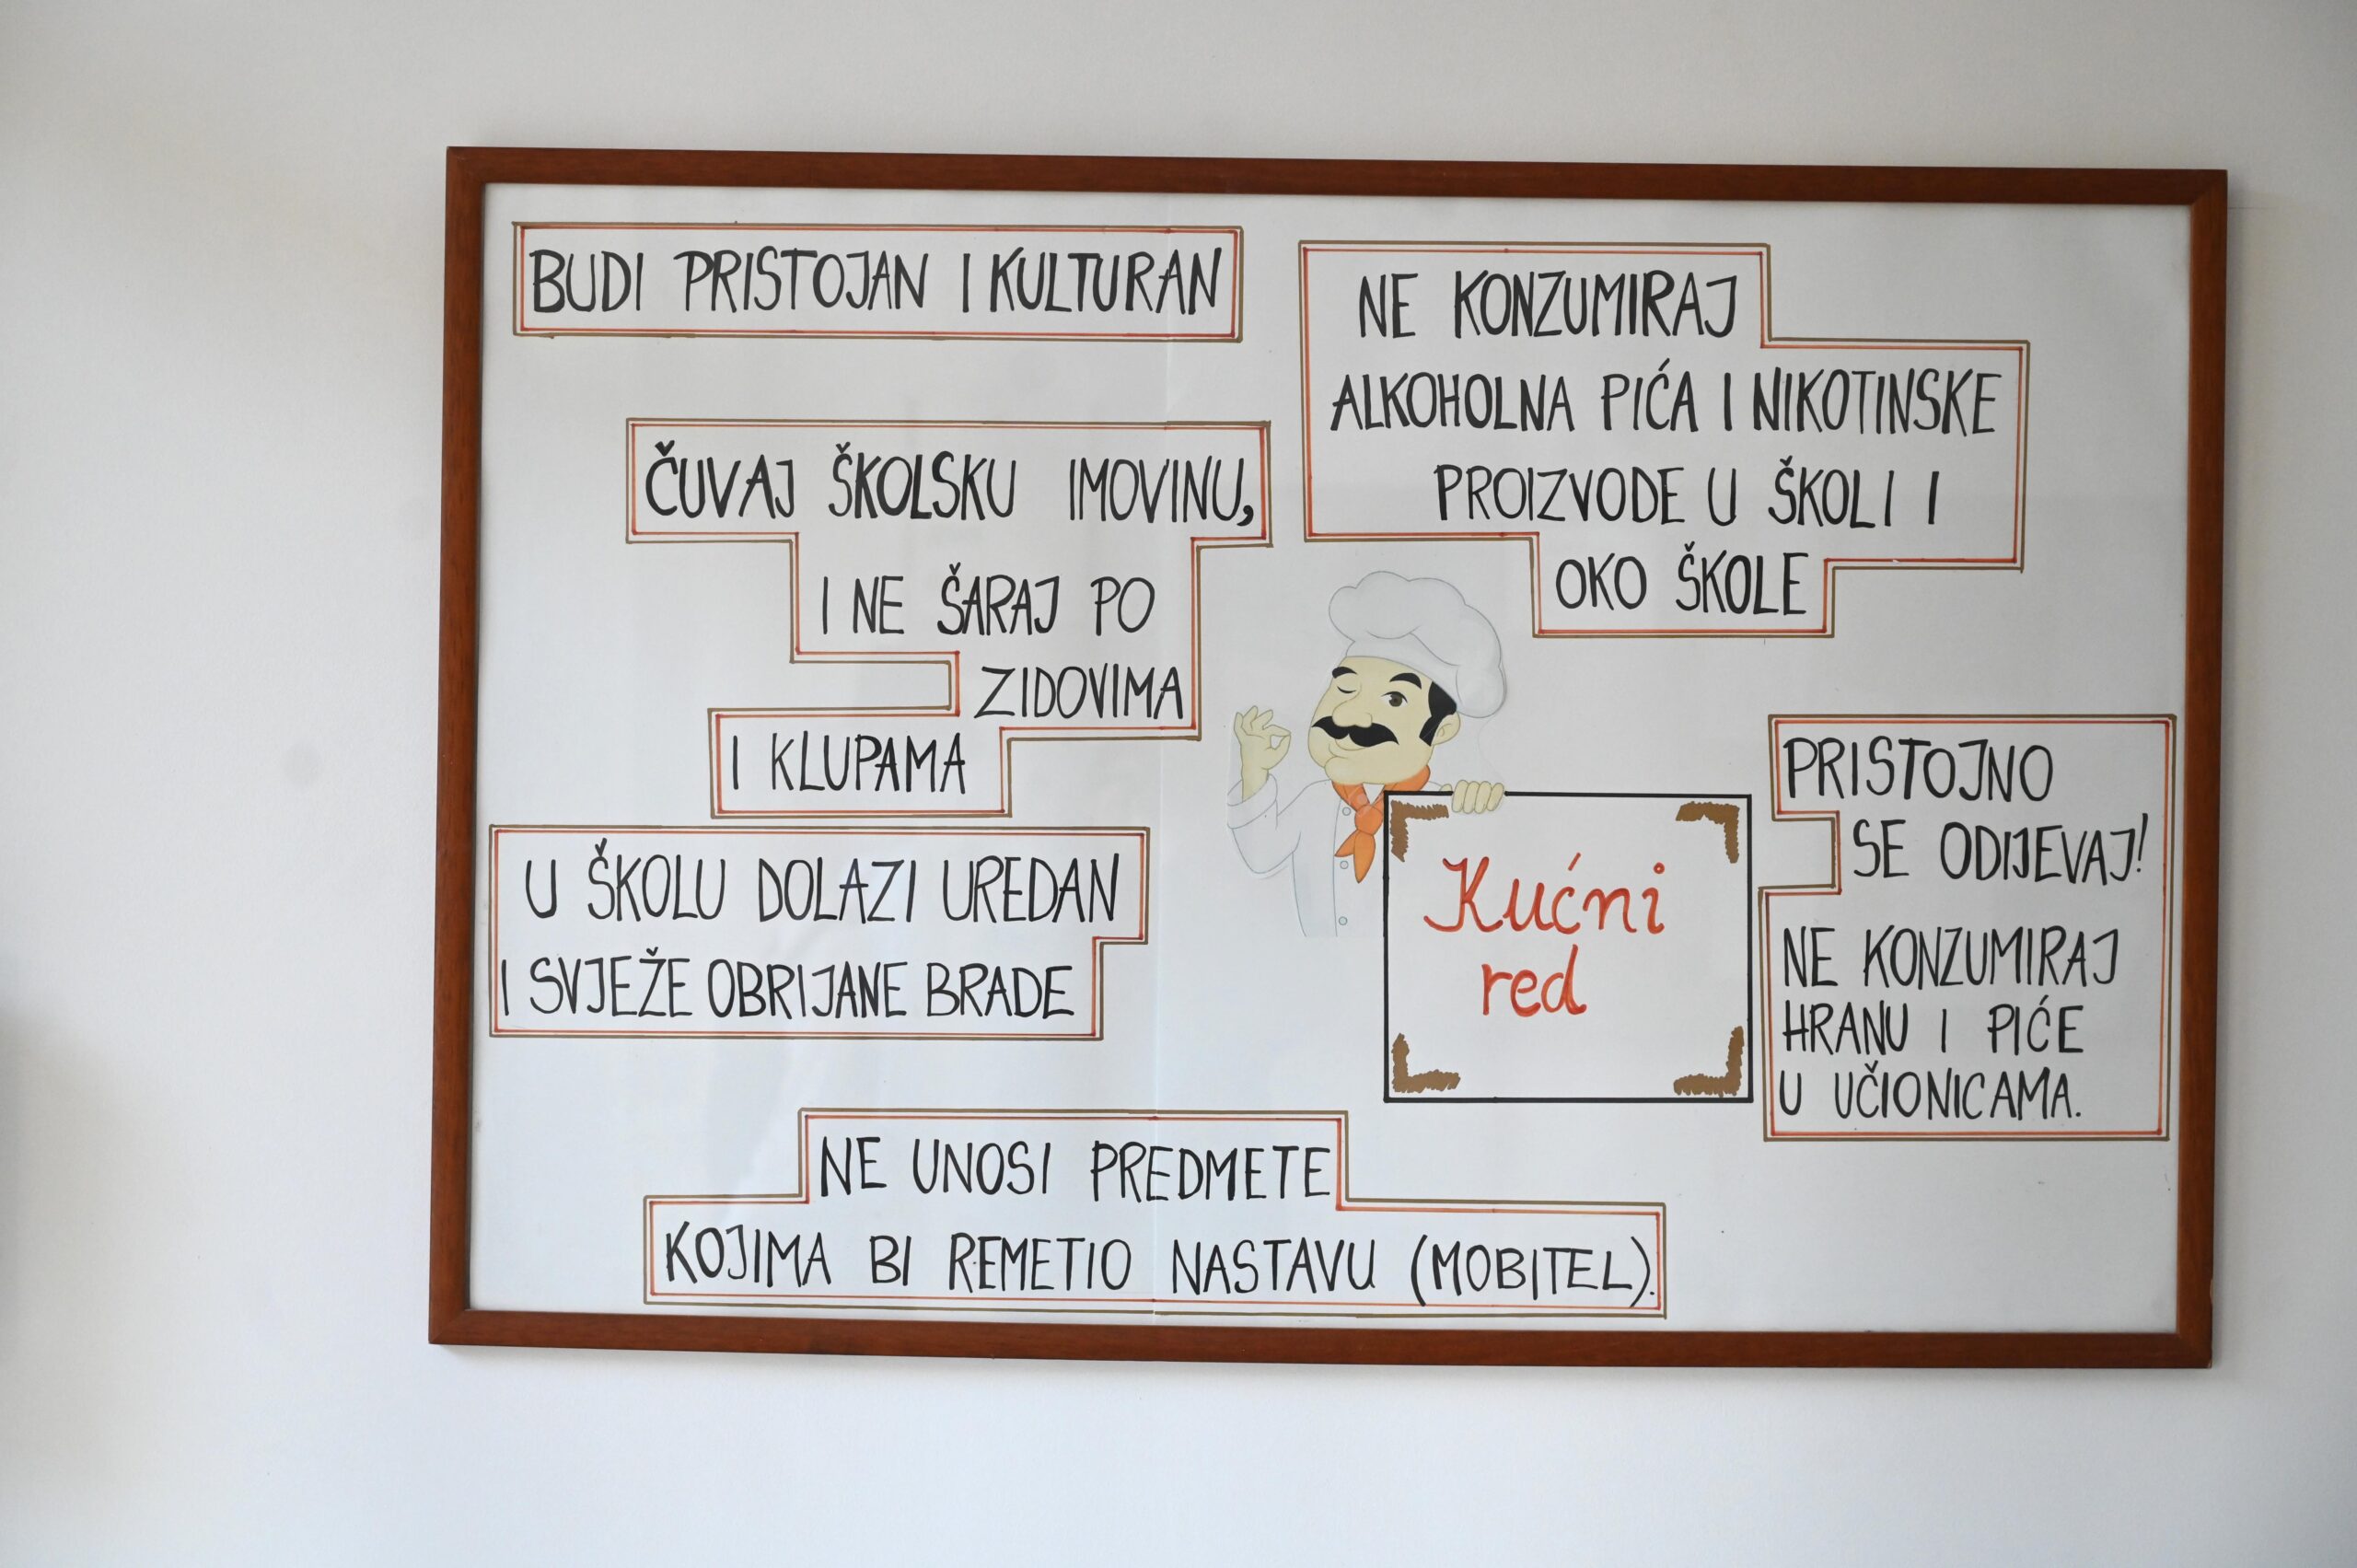 BUDI PRISTOJAN I KULTURAN
NE KONZUMIRAJ
ALKOHOLNA PIĆA I NIKOTINSKE
PROIZVODE U ŠKOLI I
OKO ŠKOLE
ČUVAJ ŠKOLSKU IMOVINU,
I NE ŠARAJ PO
ZIDOVIMA
I KLUPAMA
U ŠKOLU DOLAZI UREDAN
I SVJEŽE OBRIJANE BRADE
Kućni
red
PRISTOJNO
SE ODIJEVAJ!
NE KONZUMIRAJ
HRANU I PIĆE
U UČIONICAMA.
NE UNOSI PREDMETE
KOJIMA BI REMETIO NASTAVU (MOBITEL).